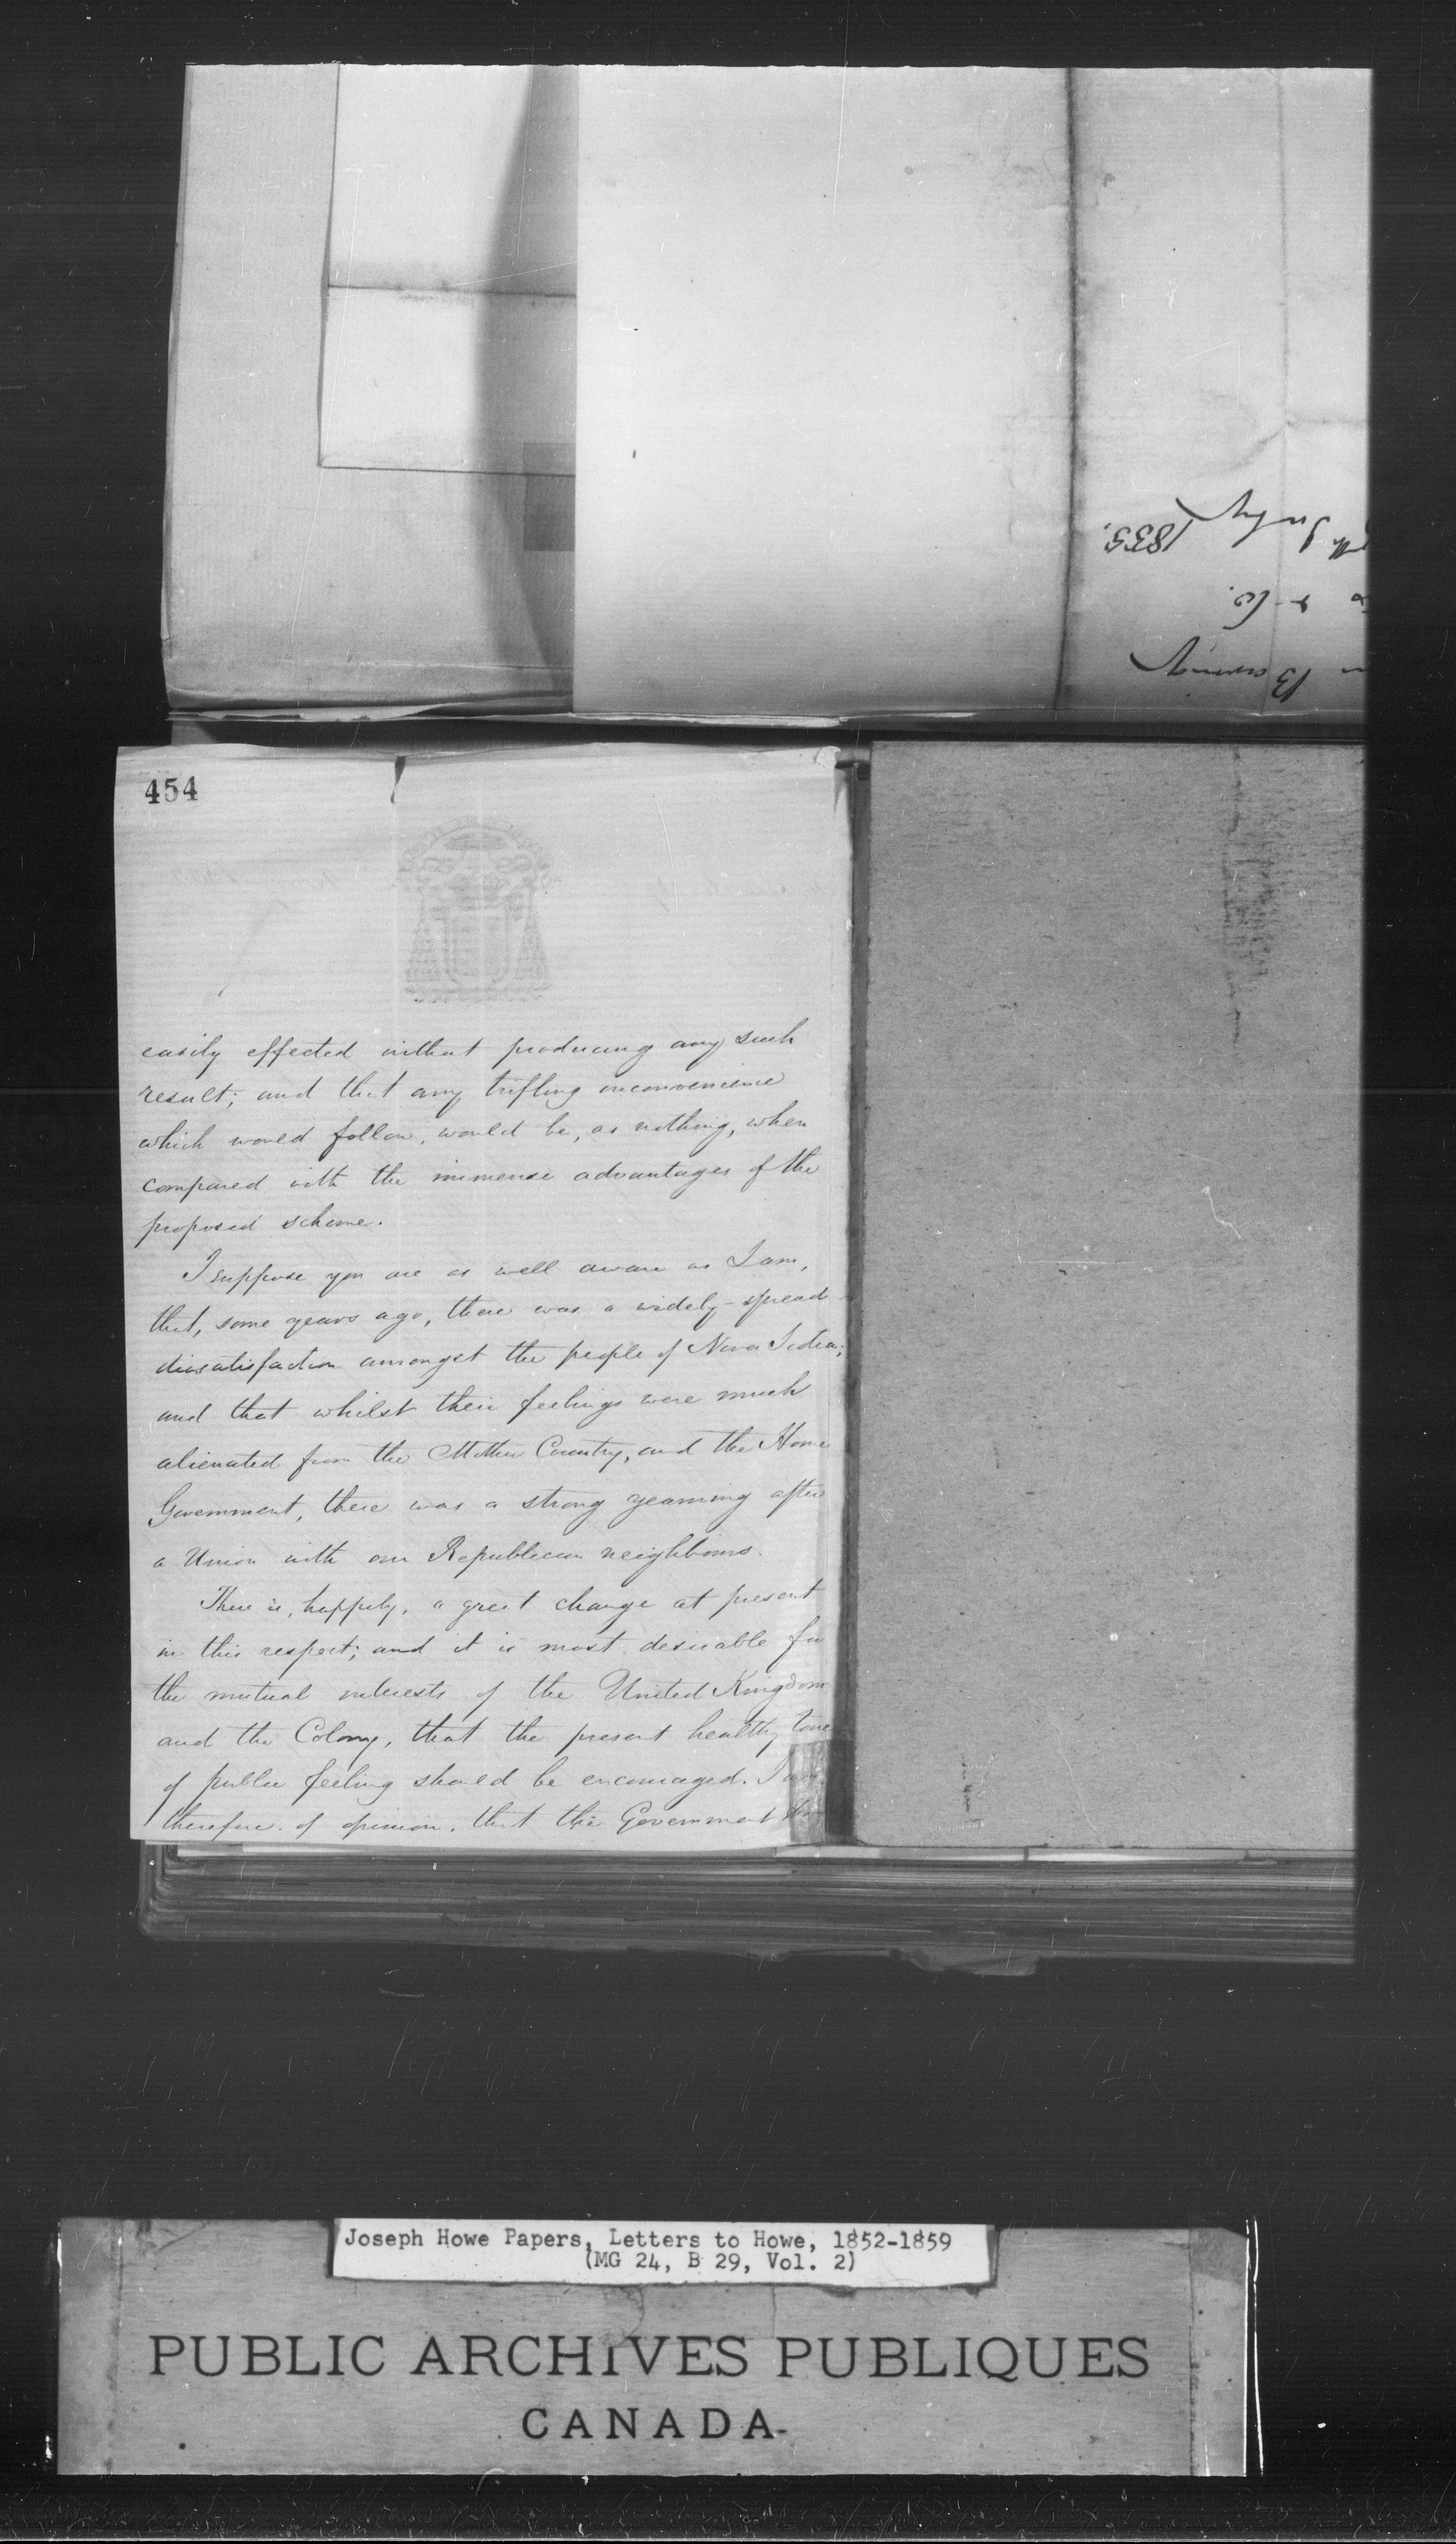 th July 1855.
& Co.
Baring
454
easily effected without producing any such
result; and that any trifling inconvenience
which would follow, would be, as nothing, when
compared with the immense advantages of the
proposed scheme.
I suppose you are as well aware as I am,
that, some years ago, there was a widely-spread
dissatisfaction amongst the people of Nova Scotia;
and that whilst their feelings were much
alienated from the Mother Country, and the Home
Government, there was a strong yearning after
a Union with our Republican neighbours.
There is, happily, a great change at present
in this respect; and it is most desirable for
the mutual interests of the United Kingdom
and the Colony, that the present healthy tone
of public feeling should be encouraged. I am
therefore of opinion, that the Government
Joseph Howe Papers, Letters to Howe, 1852-1859
(MG 24, B 29, Vol. 2)
PUBLIC ARCHIVES PUBLIQUES
CANADA-